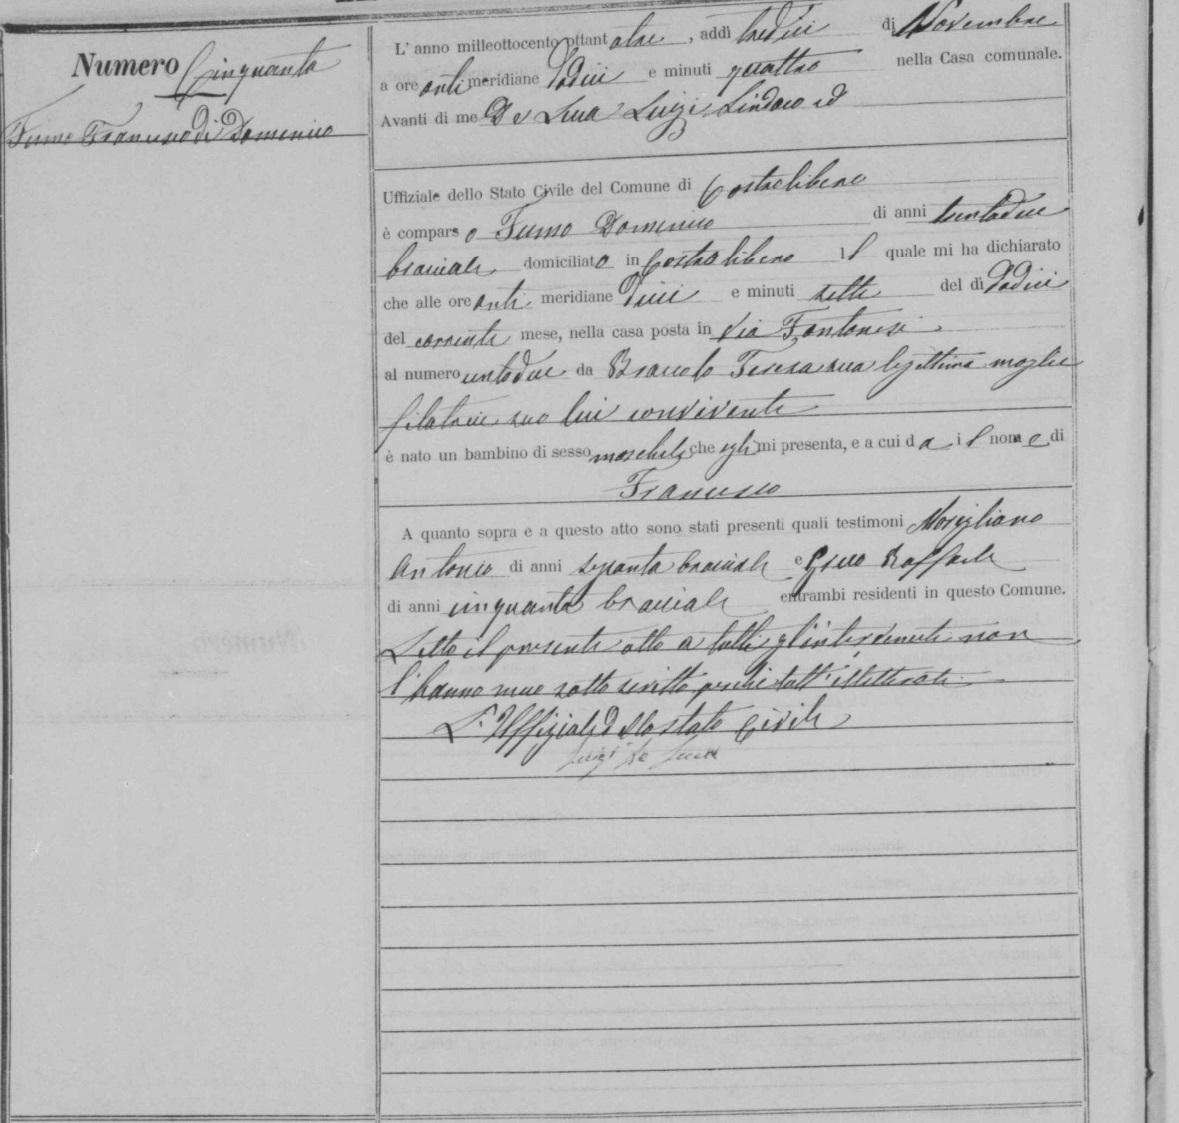 Numero Cinquanta
Fumo Francesco di Domenico
L' anno milleottocento ottant , addì tredici di Novembre
a ore anti meridiane dodici e minuti quattro nella Casa comunale.
Avanti di me De Luca Luigi Sindaco ed
Uffiziale dello Stato Civile del Comune di
è comparso Fumo Domenico di anni trentadue
bracciale domiciliato in il quale mi ha dichiarato
che alle ore anti meridiane dieci e minuti sette del dì dodici
del corrente mese, nella casa posta in Via
al numero da Teresa sua legittima moglie
filatrice seco lui convivente
è nato un bambino di sesso maschile che egli mi presenta, e a cui dà il nome di
Francesco
A quanto sopra e a questo atto sono stati presenti quali testimoni
Antonio di anni bracciale e Raffaele
di anni cinquanta bracciale entrambi residenti in questo Comune.
Letto il presente atto a tutti gl'intervenuti non
l'hanno meco sottoscritto perchè tutt'illetterati
L'Uffiziale dello stato Civile
Luigi De Luca